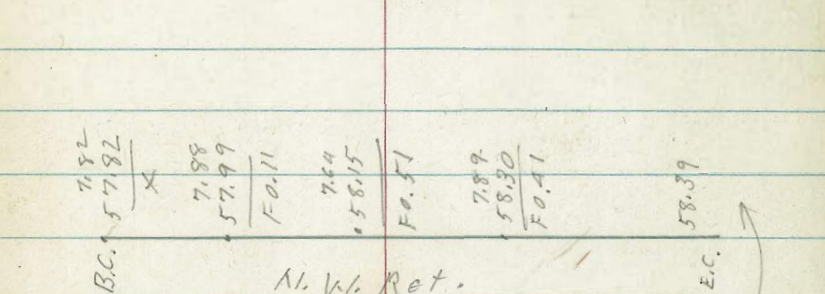 7.82
57.82
X
7.88
57.99
F0.11
7.64
58.15
F0.51
7.89
58.30
F0.41
58.39
B.C.
E.C.
N. W. Ret.